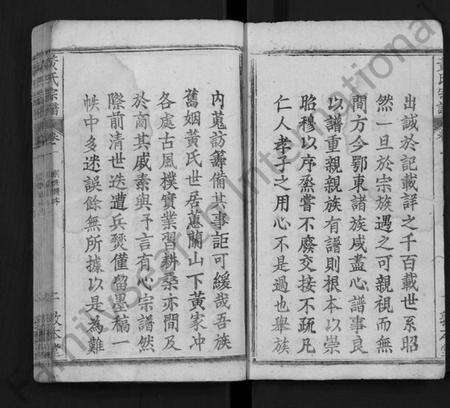 出誠於記載詳之千百載世系昭
然一旦於宗族遇之可親視而無
間方今鄂東諸族咸盡心譜事良
以譜重親親族有譜則根本以崇
昭穆以序烝嘗不廢交接不疏凡
仁人孝子之用心不是過也舉族
黃氏宗譜
內蒐訪籌備其事詎可緩哉吾族
舊姻黃氏世居蕙蘭山下黃家冲
各處古風樸實業習耕桑亦間及
於商其戚素與予言有心宗譜然
際前清世迭遭兵燹僅留墨稿一
帙中多迷誤餘無所據以是為難
黃氏宗譜
卷
二
敦
FamilySearch International